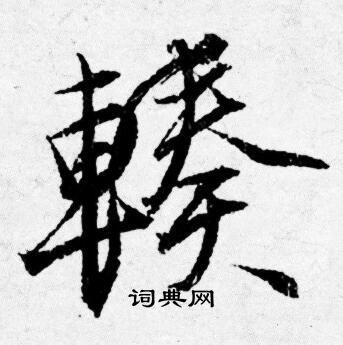 輳
词典网